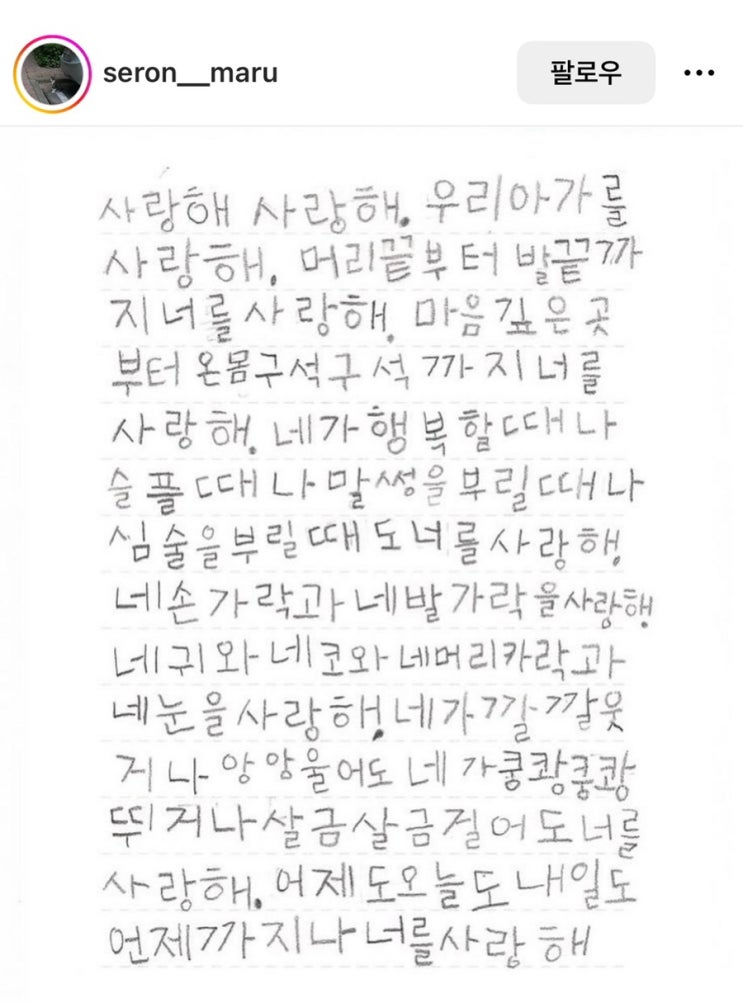 seron__maru
팔로우
사랑해 사랑해. 우리아가를
사랑해. 머리끝부터 발끝까
지 너를 사랑해. 마음 깊은 곳
부터 온몸구석구석 까지 너를
사랑해. 네가 행복할때나
슬플때나 말썽을 부릴때나
심술을부릴때도너를사랑해.
네손가락과네발가락을사랑해.
네귀와 네코와 네머리카락과
네눈을사랑해.네가깔깔웃
거나 앙앙울어도 네가쿵쾅쿵쾅
뛰거나살금살금걸어도너를
사랑해. 어제도오늘도내일도
언제까지나 너를사랑해